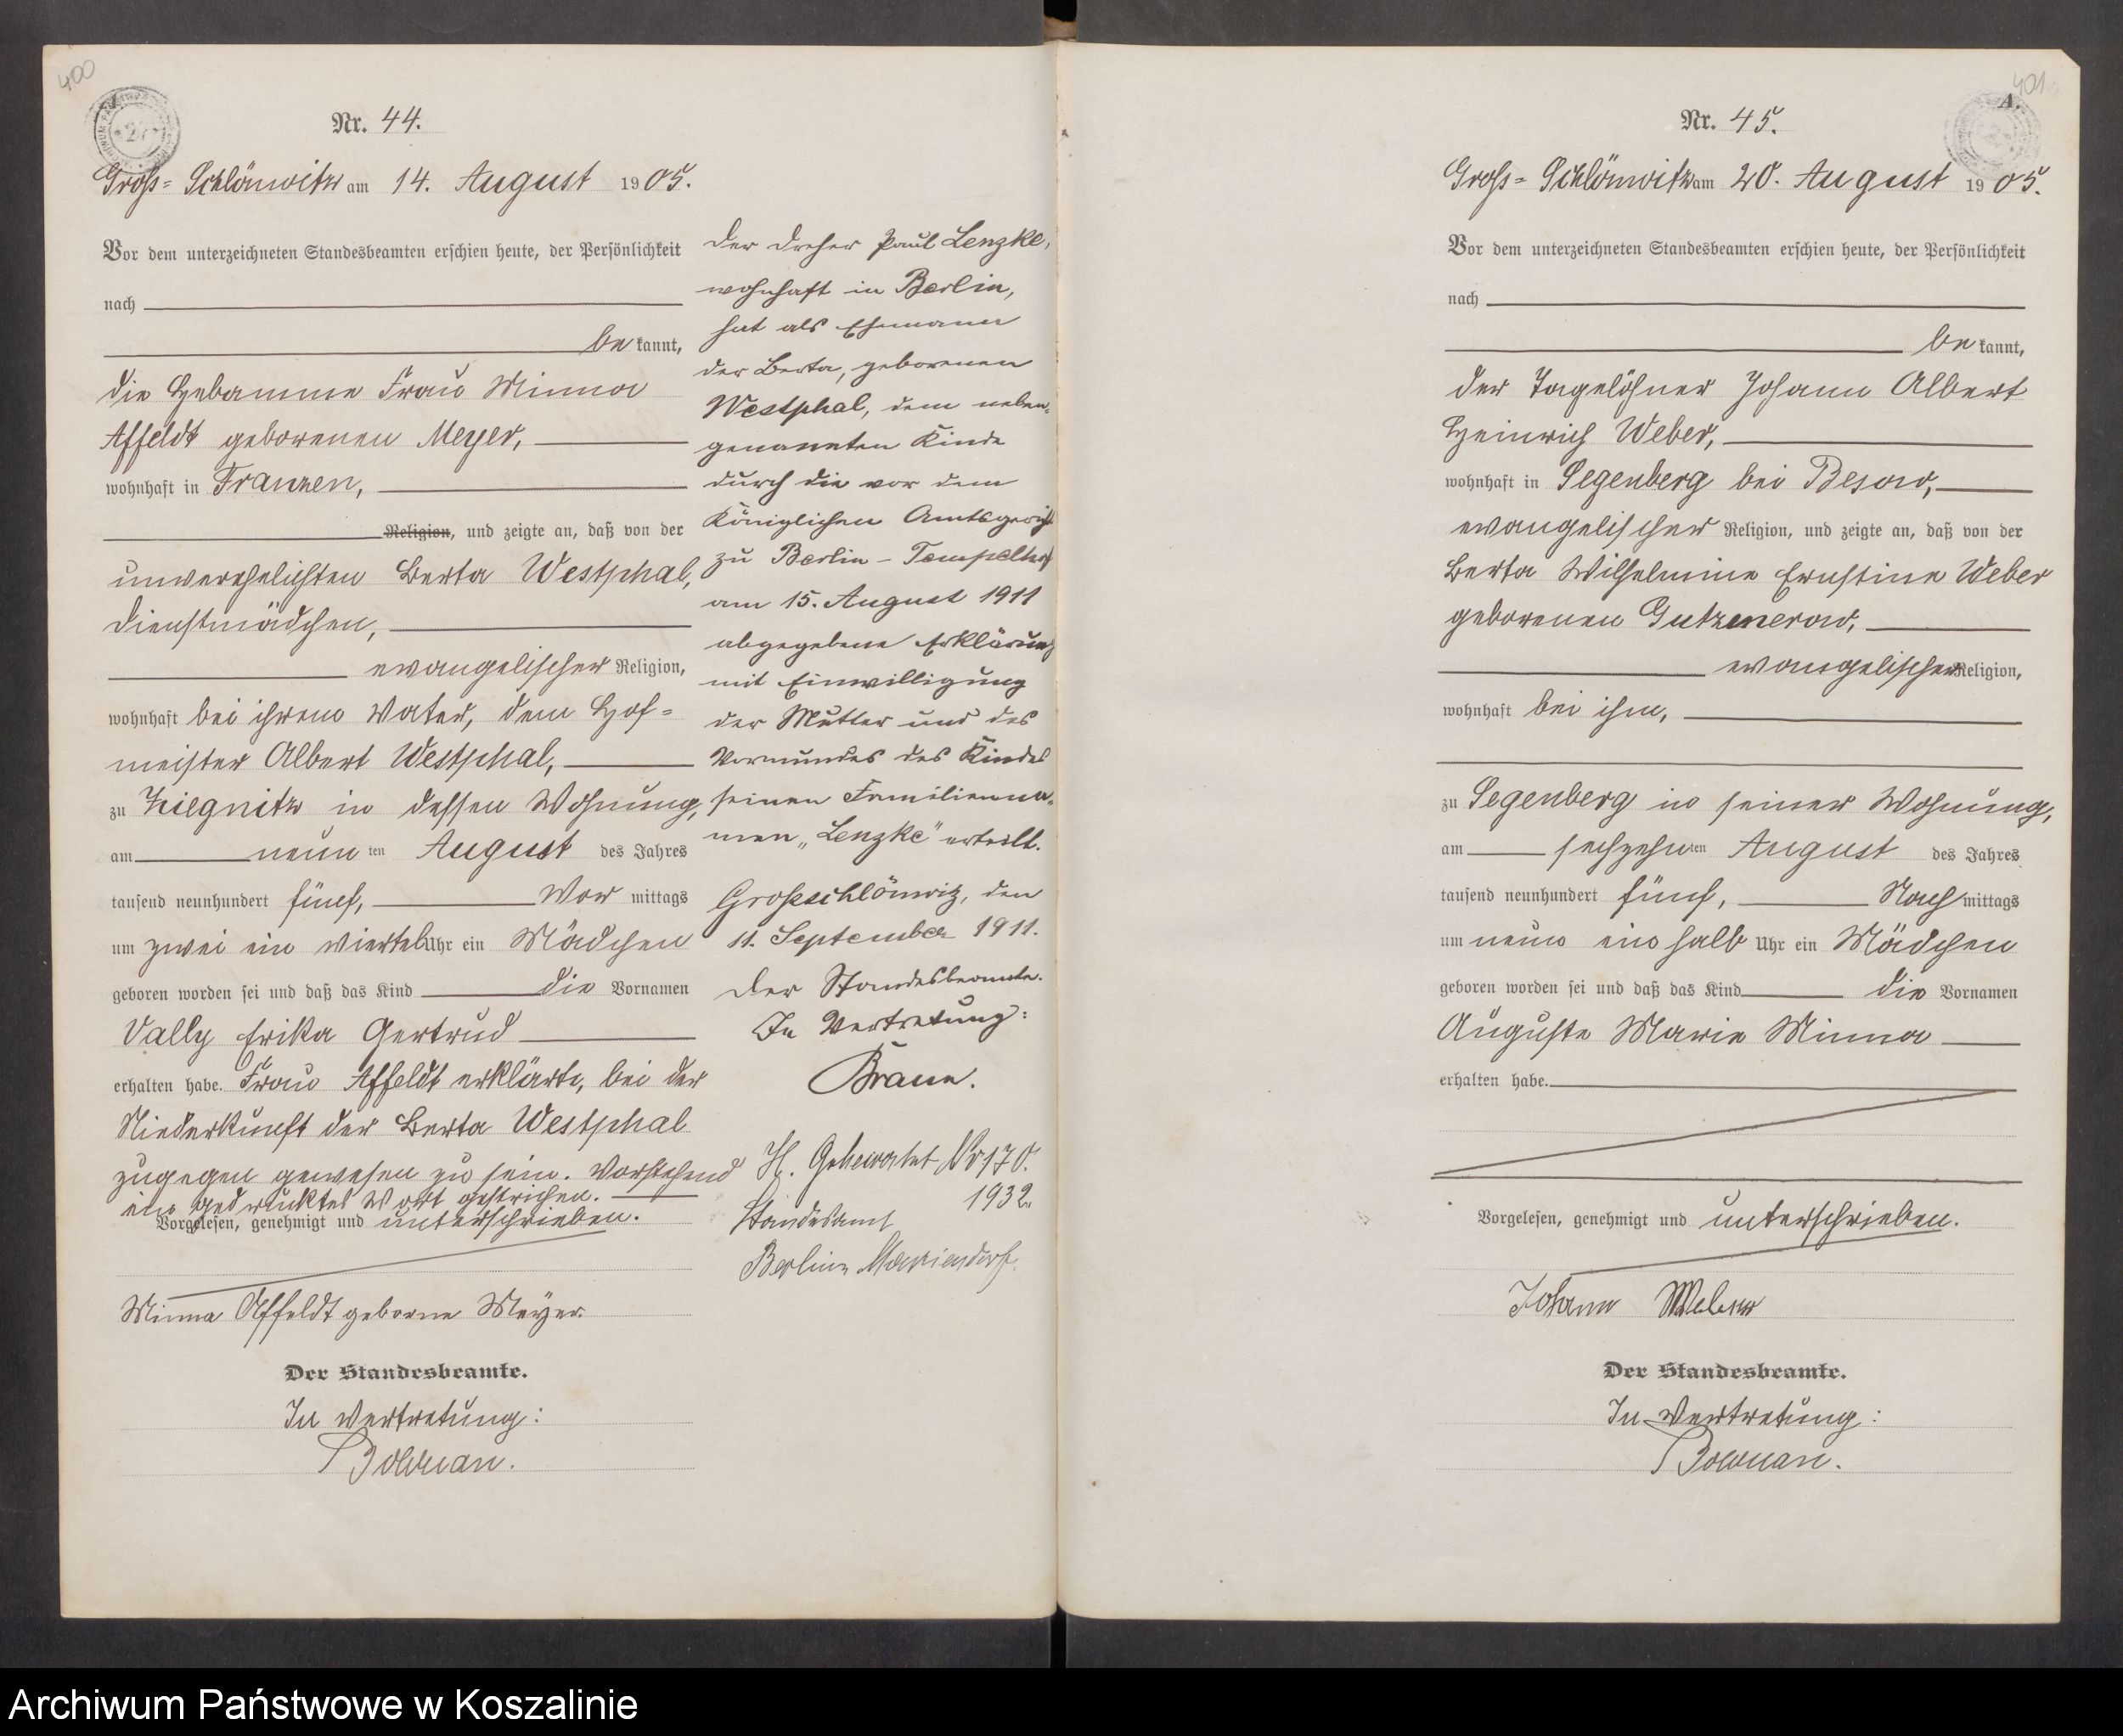 400
Nr. 44.
Groß-Schlönwitz am 14. August 1905.
Vor dem unterzeichneten Standesbeamten erschien heute, der Persönlichkeit
nach
be kannt,
die Hebamme Frau Minna
Affeldt geborenen Meyer,
wohnhaft in Franzen,
Religion, und zeigte an, daß von der
unverehelichten Berta Westphal,
Dienstmädchen,
evangelischer Religion,
wohnhaft bei ihrem Vater, dem Hof-
meister Albert Westphal,
zu Ziegnitz in dessen Wohnung,
am neun ten August des Jahres
tausend neunhundert fünf, Vor mittags
um zwei ein viertel Uhr ein Mädchen
geboren worden sei und daß das Kind die Vornamen
Vally Erika Gertrud
erhalten habe. Frau Affeldt erklärte, bei der
Niederkunft der Berta Westphal
zugegen gewesen zu sein. Vorstehend
ein gedrucktes Wort gestrichen.
Vorgelesen, genehmigt und unterschrieben.
Minna Affeldt geborne Meyer.
Der Standesbeamte.
In Vertretung:
Der Dreher Paul Lenzke,
wohnhaft in Berlin,
hat als Ehemann
der Berta, geborenen
Westphal, dem neben-
genannten Kinde
durch die vor dem
Königlichen Amtsgericht
zu Berlin-Tempelhof
am 15. August 1911
abgegebene Erklärung
mit Einwilligung
der Mutter und des
Vormundes des Kindes
seinen Familienna-
men „Lenzke" erteilt.
Großschlönwitz, den
11. September 1911.
Der Standesbeamte.
In Vertretung:
Braun.
H. Geheiratet Nr 170.
1932.
Standesamt
Berlin-Mariendorf.
401
A.
Nr. 45.
Groß-Schlönwitz am 20. August 1905.
Vor dem unterzeichneten Standesbeamten erschien heute, der Persönlichkeit
nach
be kannt,
der Tagelöhner Johann Albert
Heinrich Weber,
wohnhaft in Segenberg bei Besow,
evangelischer Religion, und zeigte an, daß von der
Berta Wilhelmine Ernstine Weber
geborenen Gutzmerow,
evangelischer Religion,
wohnhaft bei ihm,
zu Segenberg in seiner Wohnung,
am sechzehn ten August des Jahres
tausend neunhundert fünf, Nach mittags
um neun ein halb Uhr ein Mädchen
geboren worden sei und daß das Kind die Vornamen
Auguste Marie Minna
erhalten habe.
Vorgelesen, genehmigt und unterschrieben.
Johann Weber
Der Standesbeamte.
In Vertretung:
Archiwum Państwowe w Koszalinie